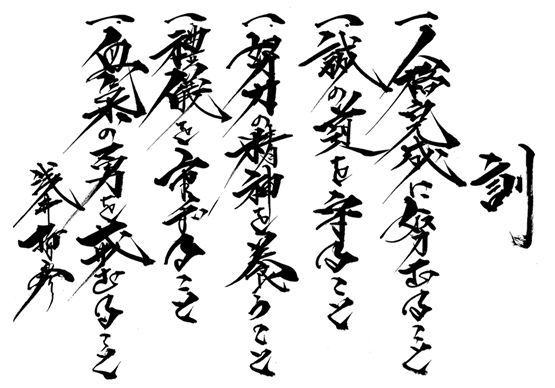 訓
一、人格完成に努むること
一、誠の道を守ること
一、努力の精神を養うこと
一、禮儀を重ずること
一、血氣の勇を戒むること